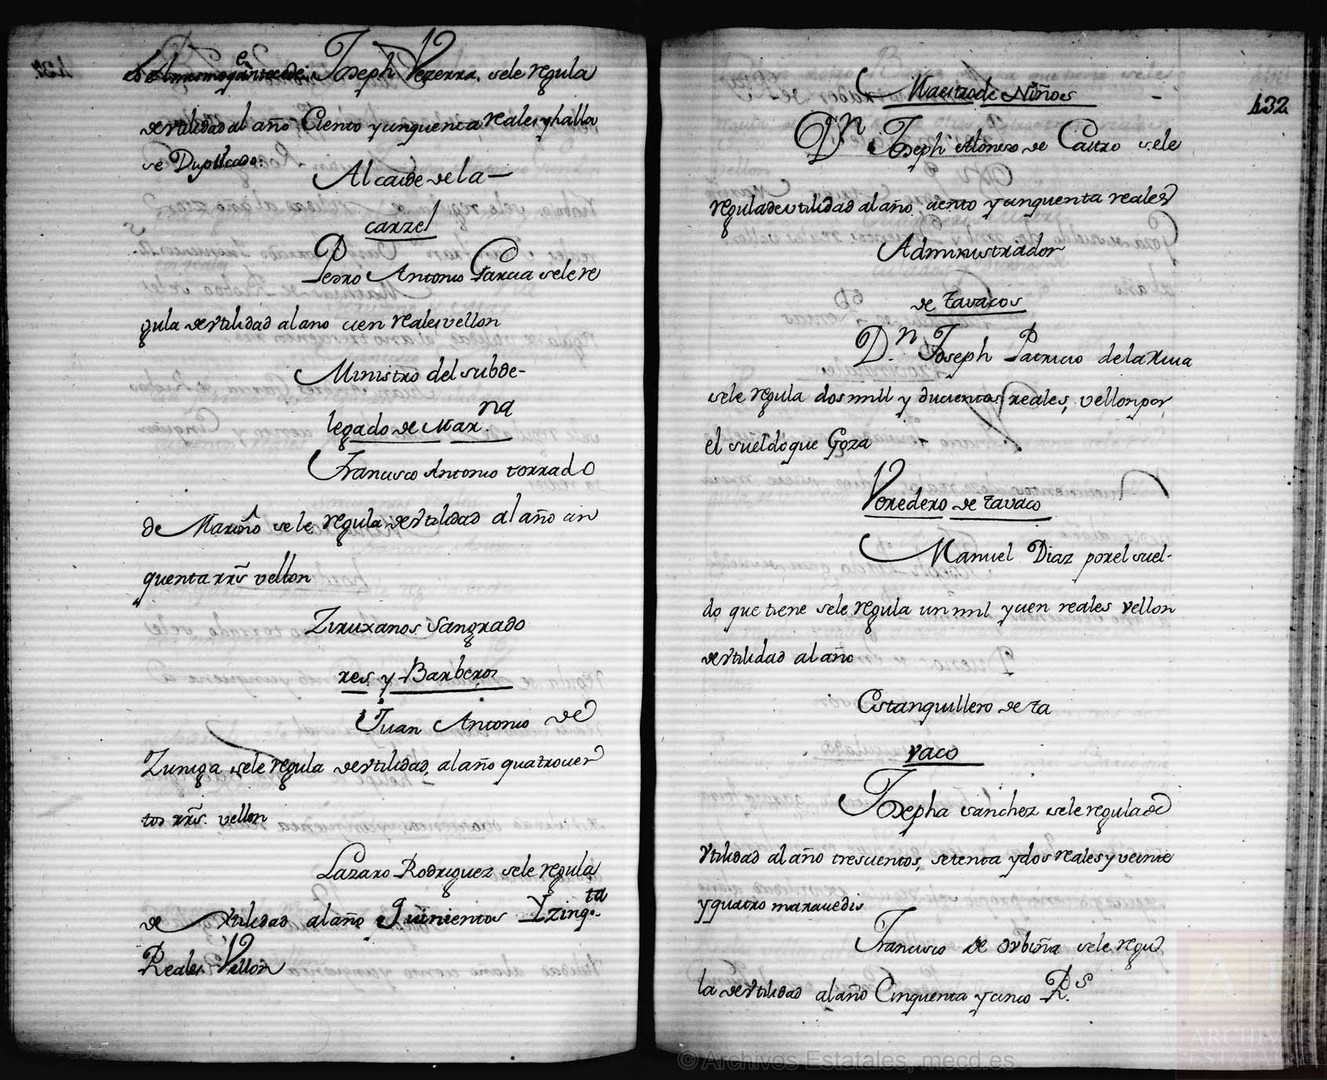 Joseph Vezerra, sele regula
de Vtilidad al año Ciento y cinquenta reales y halla
se Duplicado.
Alcaide de la
carzel
Pedro Antonio Garcia sele re
gula de Vtilidad al ano cien reales vellon
Ministro del subde-
legado de Mar.na
Francisco Antonio torrado
de Mariño se le regula de Vtilidad al año cin
quenta rrs vellon
Ziruxanos Sangrado
res y Barberos
Juan Antonio de
Zuniga sele regula de Vtilidad, al año quatrocien
tos rrs. vellon
Lazaro Rodriguez sele regula
de Vtilidad al año quinientos Yzinq.ta
Reales Vellon
132
Maestro de Niños
Dn Joseph Alonso de Castro sele
regula de utilidad al año ciento y cinquenta reales
Administrador
de tavacos
D.n Joseph Patricio de la Riua
sele regula dos mill y ducientos reales, vellon por
el sueldo que Goza
Veredero de tavaco
Manuel Diaz por el suel-
do que tiene sele regula un mil y cien reales vellon
de Vtilidad al año
Estanquillero de ta
vaco
Josepha Sanchez sele regula de
Vtilidad al año trescientos, setenta y dos reales y veinte
y quatro maravedis
Francisco de Orbiña sele regu
la de Vtilidad al año Cinquenta y cinco R.s
© Archivos Estatales, mecd.es
ARCHIVOS
ESTATALES